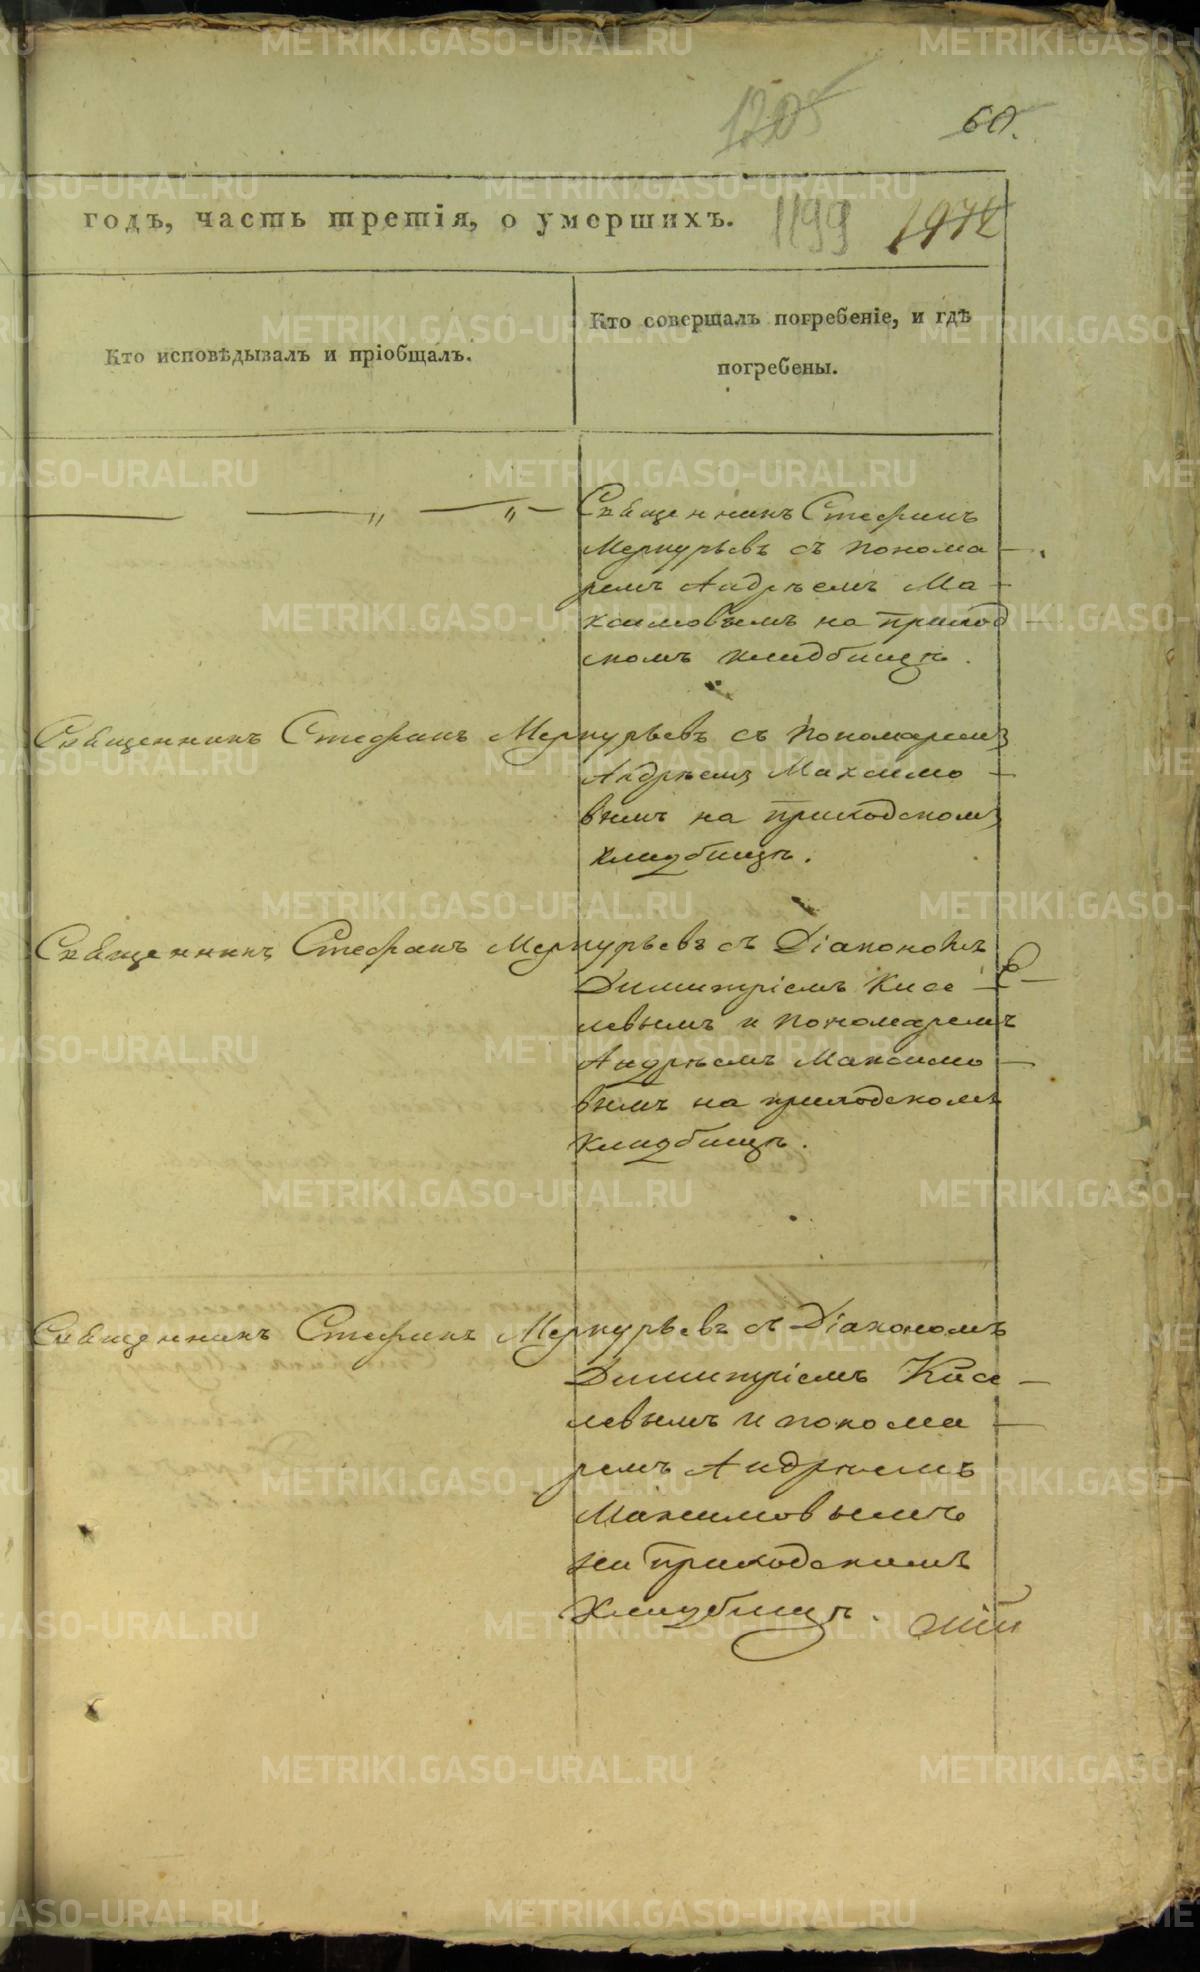 1205
60.
годъ, часть третія, о умершихъ. 1199 1972
Кто исповѣдывалъ и пріобщалъ.
Кто совершалъ погребеніе, и гдѣ
погребены.
— — „ — „ — Священникъ Стефанъ
Меркурьевъ съ понома-
ремъ Андрѣемъ Ма-
ксимовымъ на приход-
скомъ кладбищѣ.
Священникъ Стефанъ Меркурьевъ съ пономаремъ
Андрѣемъ Максимо-
вымъ на приходскомъ
кладбищѣ.
Священникъ Стефанъ Меркурьевъ съ Діакономъ
Димитріемъ Кисе-
левымъ и пономаремъ
Андрѣемъ Максимо-
вымъ на приходскомъ
кладбищѣ.
Священникъ Стефанъ Меркурьевъ съ Діакономъ
Димитріемъ Кисе-
левымъ и понома-
ремъ Андрѣемъ
Максимовымъ
на приходскомъ
кладбищѣ.
METRIKI.GASO-URAL.RU